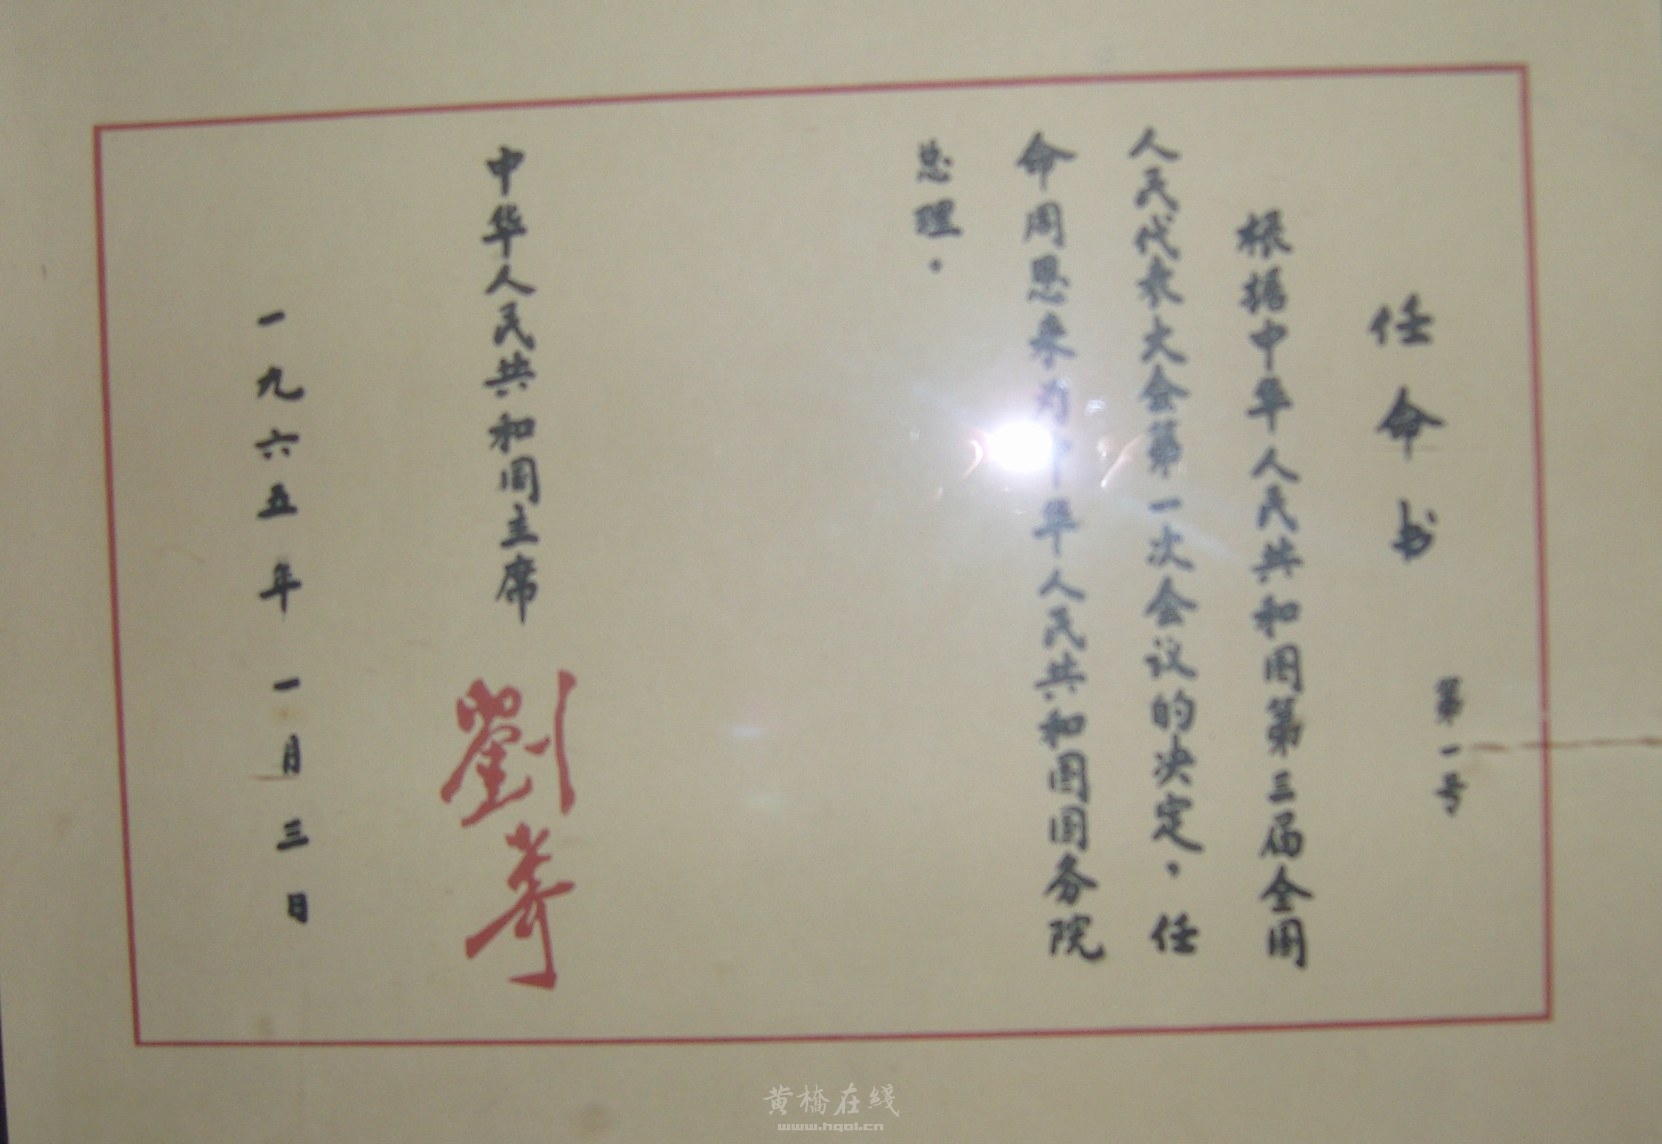 任命书
第一号
根据中华人民共和国第三届全国
人民代表大会第一次会议的决定，任
命周恩来为中华人民共和国国务院
总理。
中华人民共和国主席
劉少奇
一九六五年一月三日
黄橋在綫
www.hqol.cn